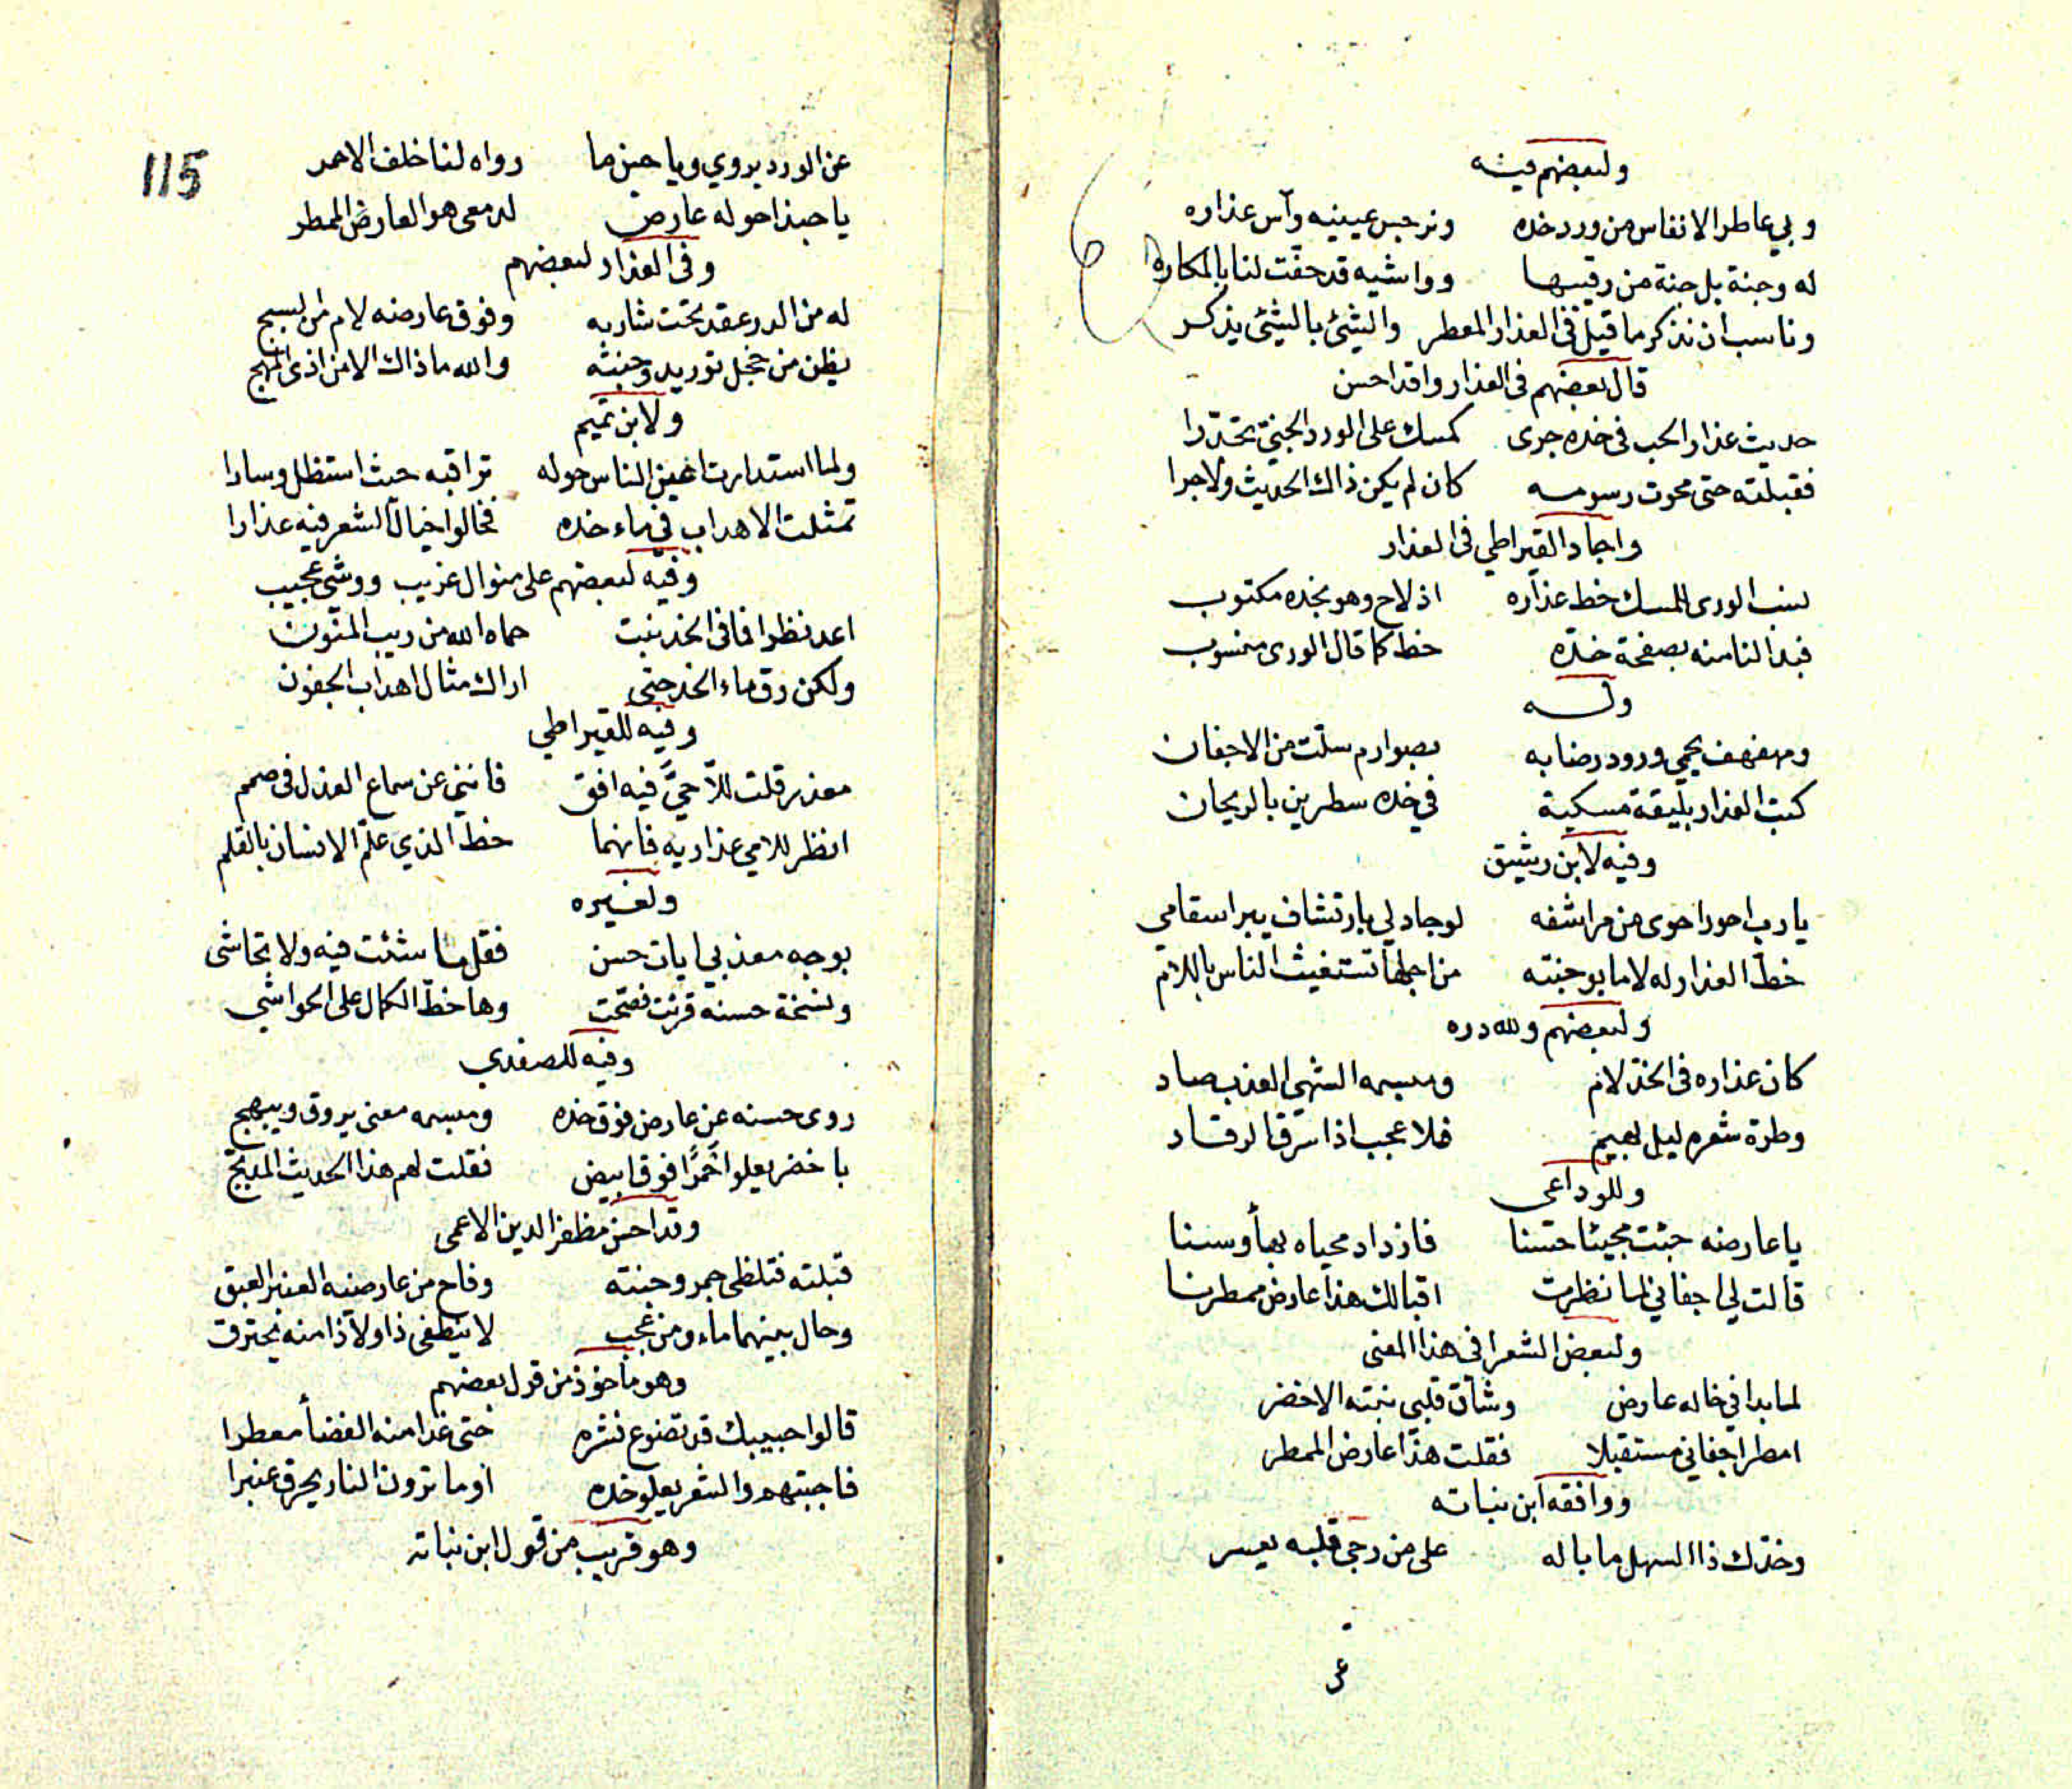 ولبعضهم فيه
وبي عاطر الانفاس من ورد خده ونرجس عينيه وآس عذاره
له وجنة بل جنة من رقيبها وواشيه قد حفت لنا بالمكاره
وناسب ان نذكر ما قيل في العذار المعطر والشئ بالشئ يذكر
قال بعضهم في العذار واقد احسن
حديث عذار الحب في خده جرى كمسك على الورد الجني تحدرا
فقبلته حتى محوت رسومه كان لم يكن ذاك الحديث ولا جرا
واجاد القيراطي في العذار
نسب الورى للمسك خط عذاره اذ لاح وهو بخده مكتوب
فبدا لنا منه بصفحة خده خط كما قال الورى منسوب
وله
ومهفهف يحمي ورود رضابه بصوارم سلت من الاجفان
كتب العذار بليقة مسكية في خده سطرين بالريحان
وفيه لابن رشيق
يا رب احور احوى من مراشفه لو جاد لي بارتشاف يبر اسقامي
خط العذار له لاما بوجنته من اجلها تستغيث الناس باللام
ولبعضهم ولله دره
كان عذاره في الخد لام ومبسمه الشهى العذب صاد
وطرة شعره ليل بهيم فلا عجب اذا سرق الرقاد
وللوداعي
يا عارضه جئت مجيئا حسنا فازداد محياه بهأ وسنا
قالت لي اجفاني لما نظرت اقبالك هذا عارض ممطرنا
ولبعض الشعرا في هذا المعنى
لما بدا في خاله عارض وشاق قلبي نبته الاخضر
امطر اجفاني مستقبلا فقلت هذا عارض الممطر
ووافقه ابن نباته
وخدك ذا السهل ما باله على من رجى قلبه يعسر
عن
115
عن الورد يروي ويا حسن ما رواه لنا خلف الاحمر
يا حبذا حوله عارض لدمعي هو العارض الممطر
وفي العذار لبعضهم
له من الدر عقد تحت شاربه وفوق عارضه لام من السبج
يظن من خجل توريد وجنته والله ما ذاك الا من اذى المهج
ولابن تميم
ولما استدارت اعين الناس حوله تراقبه حيث استظل وسارا
تمثلت الاهداب في ماء خده فخالوا خيال الشعر فيه عذارا
وفيه لبعضهم على منوال غريب ووشي عجيب
اعد نظرا فما في الخد نبت حماه الله من ريب المنون
ولكن رق ماء الخد حتى اراك مثال اهداب الجفون
وفيه للقيراطي
معذر قلت للاحي فيه افق فانني عن سماع العذل في صمم
انظر للامي عذاريه فانهما خط الذي علم الانسان بالقلم
ولغيره
بوجه معذبي ايات حسن فقل ما شئت فيه ولا تحاشى
ونسخة حسنه قرئت فصحت وها خط الكمال على الحواشي
وفيه للصفدي
روى حسنه عن عارض فوق خده ومبسمه معنى يروق ويبهج
باخضر يعلو احمرا فوق ابيض فقلت لهم هذا الحديث المدبج
وقد احسن مظفر الدين الاعمى
قبلته فتلظى جمر وجنته وفاح من عارضيه العنبر العبق
وحال بينهما ماء ومن عجب لا ينطفي ذا ولا ذا منه يحترق
وهو مأخوذ من قول بعضهم
قالوا حبيبك قد تضوع نشره حتى غدا منه الفضأ معطرا
فاجبتهم والشعر يعلو خده اوما ترون النار يحرق عنبرا
وهو قريب من قول ابن نباته